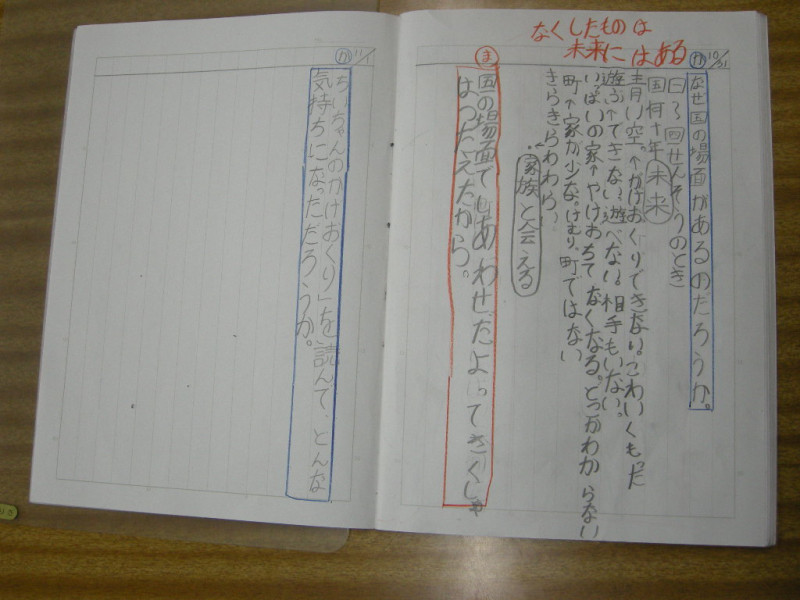 なくしたものは
未来にはある
10/31
か
なぜ五の場面があるのだろうか。
一~四せんそうのとき
五何十年未来
青い空↑かげおくりできない。こわいくもった
遊ぶ↑できない、遊べない。相手もいない。
いっぱいの家↑やけおちてなくなる。どこかわからない
町↑家が少ない。けむり、町ではない
きらきらわらい
家族と会える
ま
五の場面でしあわせだよってさくしゃ
はつたえたから。
11/1
か
ちいちゃんのかげおくり」を読んで、どんな
気持ちになっただろうか。